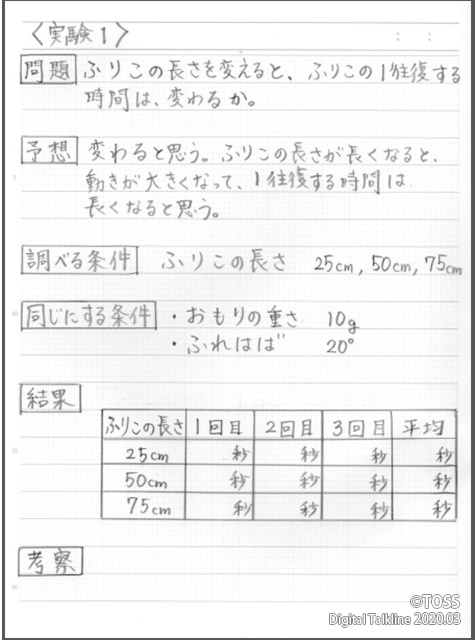 〈実験1〉 : :
問題 ふりこの長さを変えると、ふりこの1往復する
時間は、変わるか。
予想 変わると思う。ふりこの長さが長くなると、
動きが大きくなって、1往復する時間は
長くなると思う。
調べる条件 ふりこの長さ 25cm, 50cm, 75cm
同じにする条件 ・おもりの重さ 10g
・ふれはば 20°
結果
ふりこの長さ 1回目 2回目 3回目 平均
25cm 秒 秒 秒 秒
50cm 秒 秒 秒 秒
75cm 秒 秒 秒 秒
考察
©TOSS
Digital Talkline 2020.03